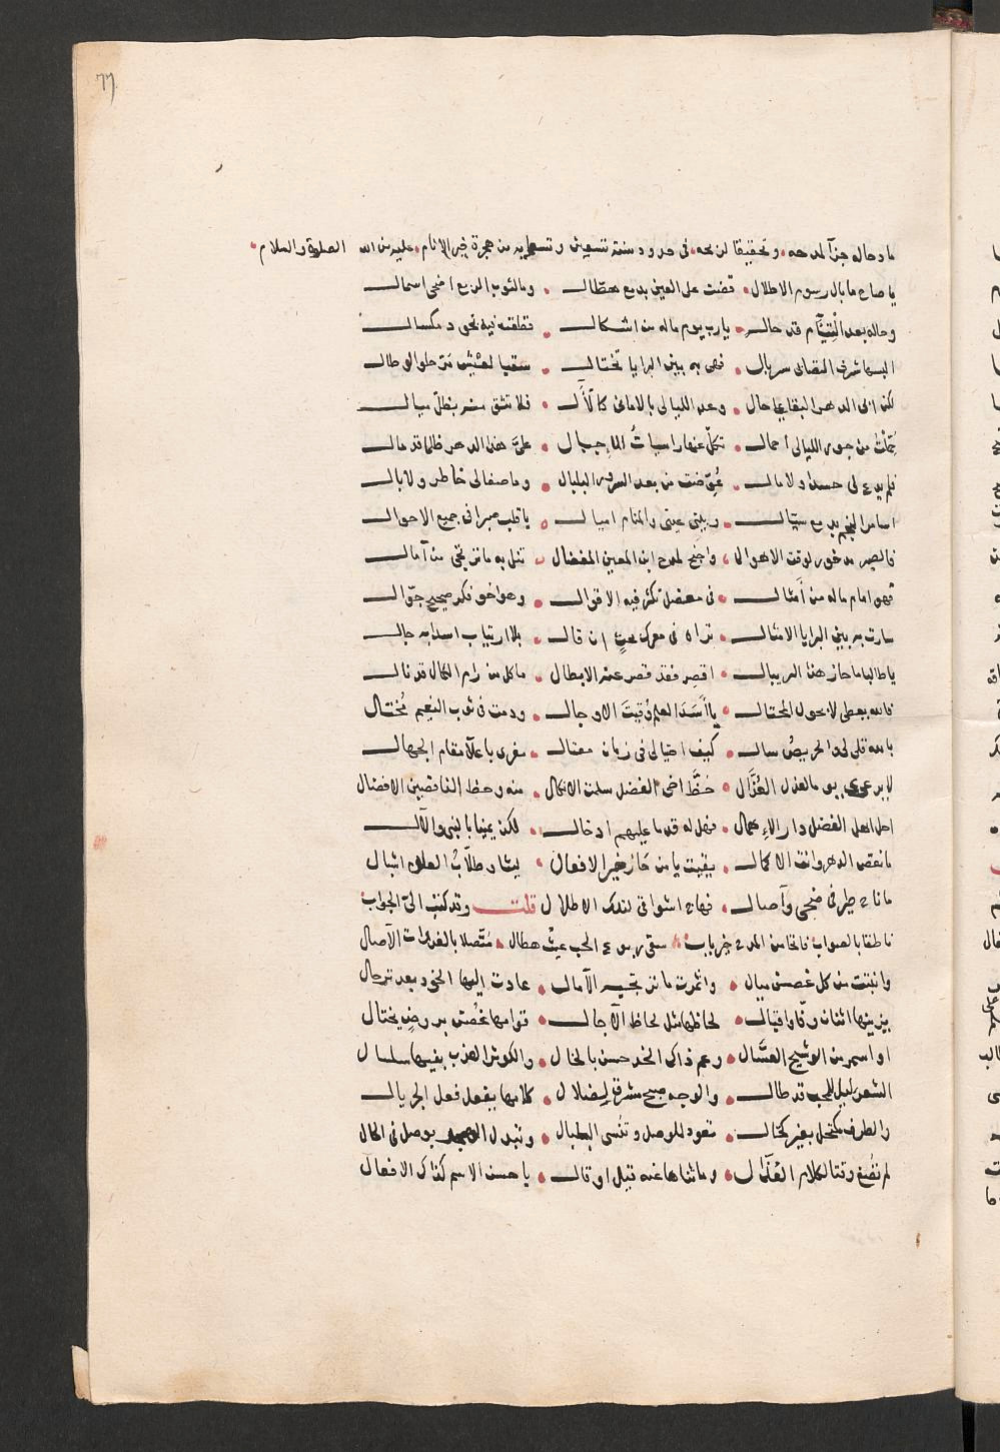 ٦٦
مادحا له جزآ لمدحه وتحقيقا لربحه في حدود سنة تسعين وتسعمايه من هجرة خير الانام عليه من الله الصلوة والسلام
يا صاح ما بال رسوم الاطلال قضت على العين بدمع هطال وما لثوب الربع اضحى اسمال
وحاله بعد قد حال يارب يوم ماله من اشكال قطعته فيه
البسها شرف سربال فهي به بين البرايا تختال سقيا لعيش مر حلو الوطال
لكن ابى الدهر البقا على حال وعد الليالي بالاماني كالآل فلا تثق منه بظل ميال
حملت من جور الليالي احمال تكل عنها راسيات الاجبال علي هذا الدهر ظلما قد مال
فلم يدع لي حسدا ولا مال عوضت من بعد السرور البلبال وما صفا لي خاطر ولا بال
اسامر النجم بدمع سيال وبين عيني والمنام اميال يا قلب صبرا في جميع الاحوال
فالصبر مدخور لوقت الاهوال واجنح لمدح ابن المعين المفضال تنل به ما ترتجي من آمال
فهو امام ماله من أمثال في معضل تكثر فيه الاقوال وهو اخو فكر صحيح جوال
سارت به بين البرايا الامثال تراه في معرك بحث ان قال بلا ارتياب اسدا به جال
يا طالبا ما حاز هذا الريبال اقصر فقد قصر عنه الابطال ما كل من رام الكمال قد نال
فالله يعطي لا بحول المحتال يا أسد العلم وقيت الاوجال ودمت في ثوب النعيم مختال
بالله قل لي لو الحريص سال كيف احتيالي في زمان مغتال مغرى باعلاء مقام الجهال
لا يرعوي يوما لعذل العذال حظ اخي الفضل سلمت الانكال منه وحظ الناقصين الافضال
احل اهل الفضل دار الاهمال فهل له قدما عليهم ادخال لكن يمينا بالنبي والآل
ما نقص الدهر وانت الاكمال بقيت يا من حاز خير الافعال ليثا وطلاب العلى اشبال
ما ناح طير في ضحى وآصال فهاج اشواقي لتلك الاطلال قلت وقد كتب الي الجواب
ناطقا بالصواب فاتحا من المدح خير باب سقى ربوع الحب غيث هطال متصلا بالغدوات الآصال
وانبتت من كل غصن ميال واثمرت ما ترتجيه الآمال عادت اليها الخود بعد ترحال
يزينها اثنان واقبال لحاظها مثل لحاظ الآجال قوامها غصن بروض يختال
او اسمر من الوشيج العسال وعم ذاك الخد حسن بالخال والكوثر العذب بفيها سلسال
الشعر ليل للمحب قد طال والوجه صبح مشرق لضلال كلامها يفعل فعل الجريال
والطرف مكتحل بغير كحال تعود للوصل وتنسى البلبال وتبدل بوصل في الحال
لم تصغ وقتا لكلام العذال وما ثناها عنه قيل او قال يا حسن الاسم كذاك الافعال